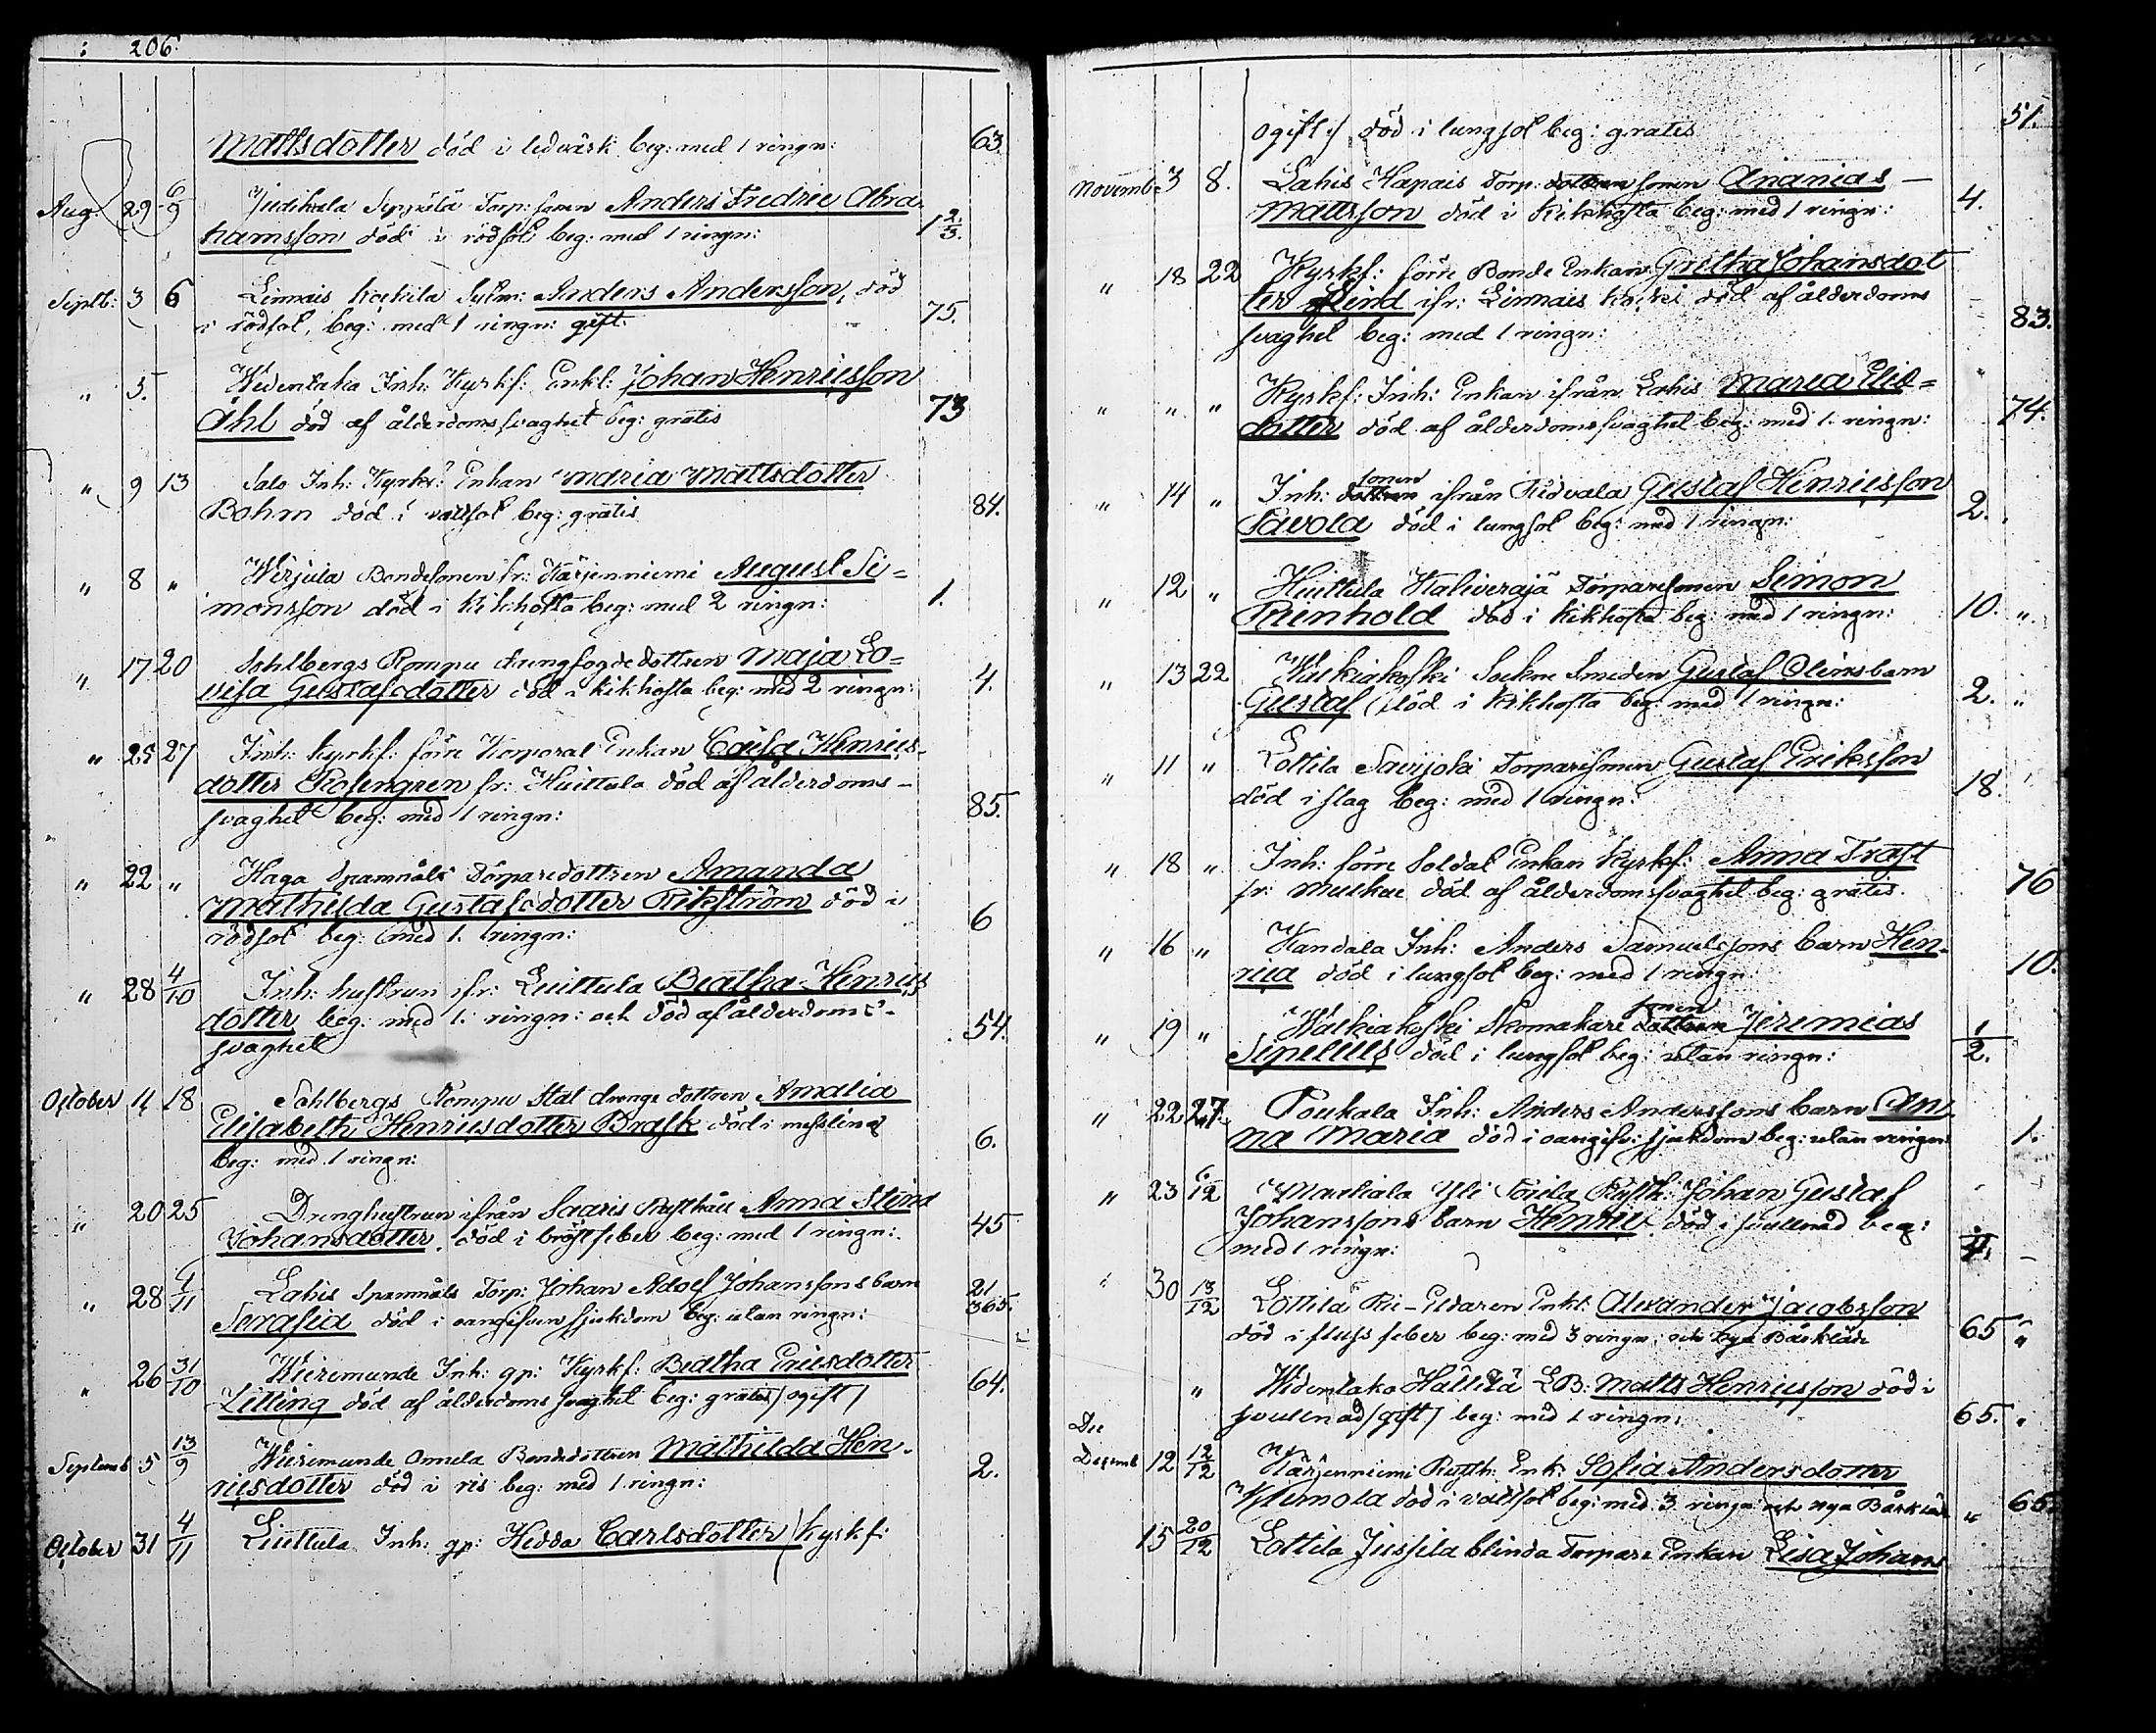 206.
Mattsdotter död i ledvärk beg: med 1 ringn: 63.
Aug: 29 6/9 Judikala Seppälä Torp: sonen Anders Fredric Abra-
hamsson död i rödsot beg: med 1 ringn: 1 2/3.
Septb: 3 6 Linnais Kockila Sytn: Anders Andersson, död
i rödsot, beg: med 1 ringn: gift. 75.
" 5. Widentaka Inh: Kyrkf: Enkl: Johan Henricsson
Åhl död af ålderdomssvaghet beg: gratis 73
" 9 13 Salo Inh: Kyrkf: Enkan Maria Mattsdotter
Bohm död i vattsot beg: gratis 84.
" 8 " Wirjula Bondesonen fr: Kärjenniemi August Si=
monsson död i kikhosta beg: med 2 ringn: 1.
" 17 20 Sohlbergs Rompu drengfogde dottren Maja Lo=
visa Gustafsdotter död i kikhosta beg: med 2 ringn: 4.
" 25 27 Inh: kyrkf: förre Korporal Enkan Caisa Henrics-
dotter Rosengren fr: Huittula död af ålderdoms-
svaghet beg: med 1 ringn: 85.
" 22 " Haga Spannåls Torparedottren Amanda
Mathilda Gustafsdotter Rikström död i
rödsot beg: med 1. ringn: 6
" 28 4/10 Inh: hustrun ifr: Luittula Beatha Henrics
dotter beg: med 1. ringn: och död af ålderdoms-
svaghet 54.
October 14 18 Sohlbergs Rompu Stal drengs dottren Amalia
Elisabeth Henricsdotter Brask död i messling
beg: med 1 ringn: 6.
" 20 25 Drenghustrun ifrån Saaris Rusthåll Anna Stina
Johansdotter död i bröstfeber beg: med 1 ringn: 45
" 28 4/11 Lahis Spannåls Torp: Johan Adolf Johanssons barn
Serafia död i oangifven sjukdom beg: utan ringn: 21/365.
" 26 31/10 Wieremunde Inh: gp: Kyrkf: Beatha Ericsdotter
Litting död af ålderdoms svaghet beg: gratis /ogift/ 64.
Septemb 5 13/9 Wieremunde Annila Bondedottren Mathilda Hen-
ricsdotter död i ris beg: med 1 ringn: 2.
October 31 4/11 Luittula Inh: gp: Hedda Carlsdotter /kyrkf:
ogift:/ död i lungsot beg: gratis 51.
Novemb: 3 8. Lahis Hapais Torp: dottren sonen Ananias
Mattsson död i kikhosta beg: med 1 ringn: 4.
" 18 22 Kyrkf: förre Bonde Enkan Gretha Johansdot
ter Lind ifr: Linnais Kockì död af ålderdoms
svaghet beg: med 1 ringn: 83.
" " " Kyrkf: Inh: Enkan ifrån Lahis Maria Elis=
dotter död af ålderdomssvaghet beg: med 1. ringn: 74.
" 14 " Inh: dottren sonen ifrån Ridvala Gustaf Henricsson
Savola död i lungsot beg: med 1 ringn: 2.
" 12 " Huittula Kaliveraja Torparesonen Simon
Reinhold död i kikhosta beg: med 1 ringn: 10. "
" 13 22 Walkiakoski Sockne Smeden Gustaf Olins barn
Gustaf död i kikhosta beg: med 1 ringn: 2. "
" 11 " Lottila Savijoki Torparesonen Gustaf Eriksson
död i slag beg: med 1 ringn: 18.
" 18 " Inh: förre Soldat Enkan Kyrkf: Anna Traft
fr: Muckae död af ålderdomssvaghet beg: gratis. 76
" 16 " Kandala Inh: Anders Samuelssons barn Hen-
rica död i lungsot beg: med 1 ringn: 10.
" 19 " Walkiakoski Skomakare dottren sonen Jeremias
Sipelius död i lungsot beg: utan ringn: 1/2.
" 22 27. Toukala Inh: Anders Anderssons barn An
na Maria död i oangifv: sjukdom beg: utan ringn: 1.
" 23 6/12 Mackiala Yli Sorila Rusth: Johan Gustaf
Johanssons barn Henric död i svullnad beg:
med 1 ringn:
" 30 13/12 Lottila Rii-Eldaren Enkl: Alexander Jacobsson
död i fluss feber beg: med 3 ringn: och nya Bårkläde 65 "
" Widentaka Hällilä LB: Matts Henricsson död i
svullnad /gift/ beg: med 1 ringn: 65. "
Dec
Decemb 12 12/12 Kärjenniemi Rusth: Enk: Sofia Andersdotter
Klemola död i vattsot beg: med 3 ringn: och nya Bårkläde " 65.
15 20/12 Lottila Jussila blinda Torpare Enkan Lisa Johans